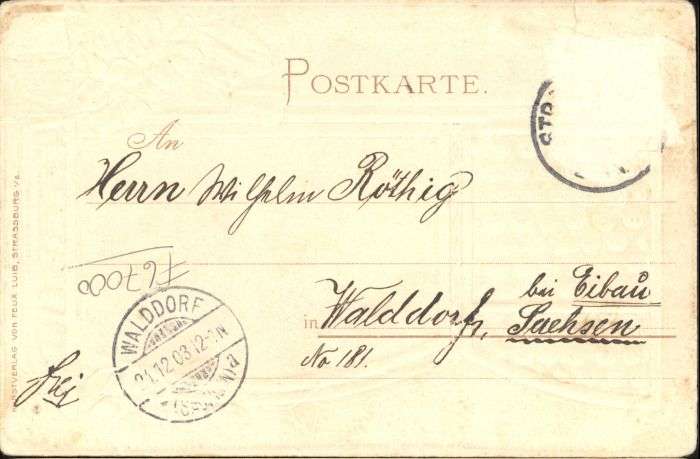 POSTKARTE.
STR
An
Herrn Wilhelm Röthig
bei Eibau
in Walddorf, Sachsen
No 181.
WALDDORF
21.12.03.12-1N
KUNSTVERLAG VON FELIX LUIB, STRASSBURG i/E